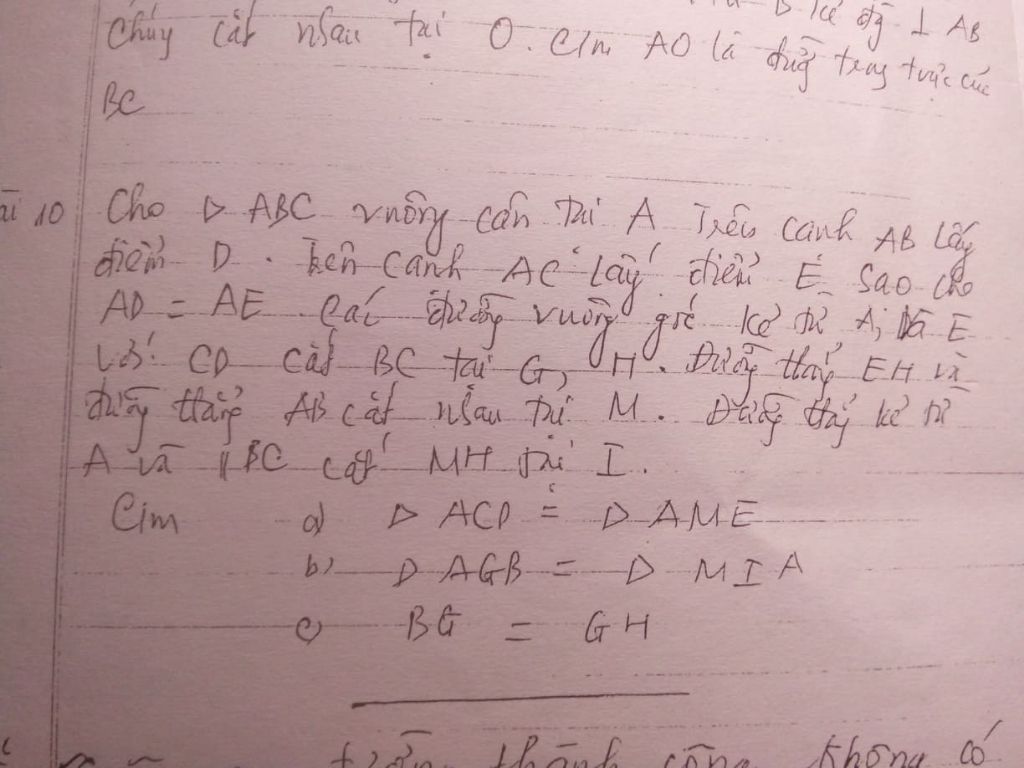 B kẻ đg ⊥ AB
Chúng cắt nhau tại O. Clm AO là đường trung trực của
BC
Bài 10 Cho Δ ABC vuông cân tại A Trên cạnh AB lấy
điểm D. Trên cạnh AC lấy điểm E sao cho
AD = AE. Các đường vuông góc kẻ từ A, và E
với CD cắt BC tại G, H. Đường thẳng EH và
đường thẳng AB cắt nhau tại M. Đường thẳng kẻ từ
A và // BC cắt MH tại I.
Clm a) Δ ACD = Δ AME
b) Δ AGB = Δ MIA
c) BG = GH
thành công không có